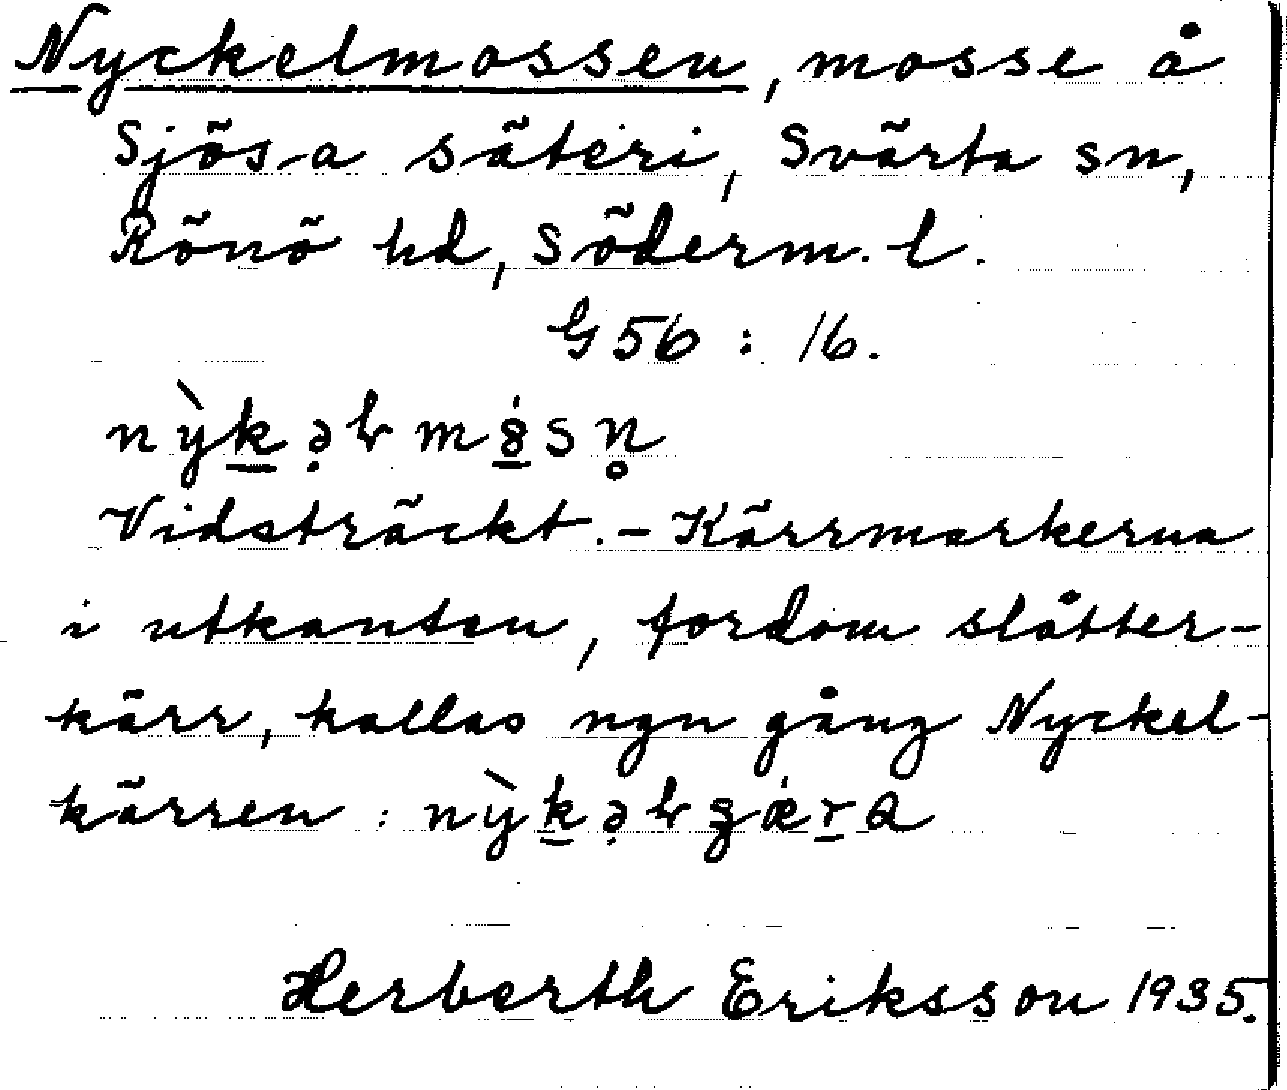 Nyckelmossen, mosse å
Sjösa säteri, Svärta sn,
Rönö hd, Söderm. l.
G 56 : 16.
Vidsträckt. – Kärrmarkerna
i utkanten, fordom slåtter-
kärr, kallas ngn gång Nyckel-
kärren :
Herberth Eriksson 1935.